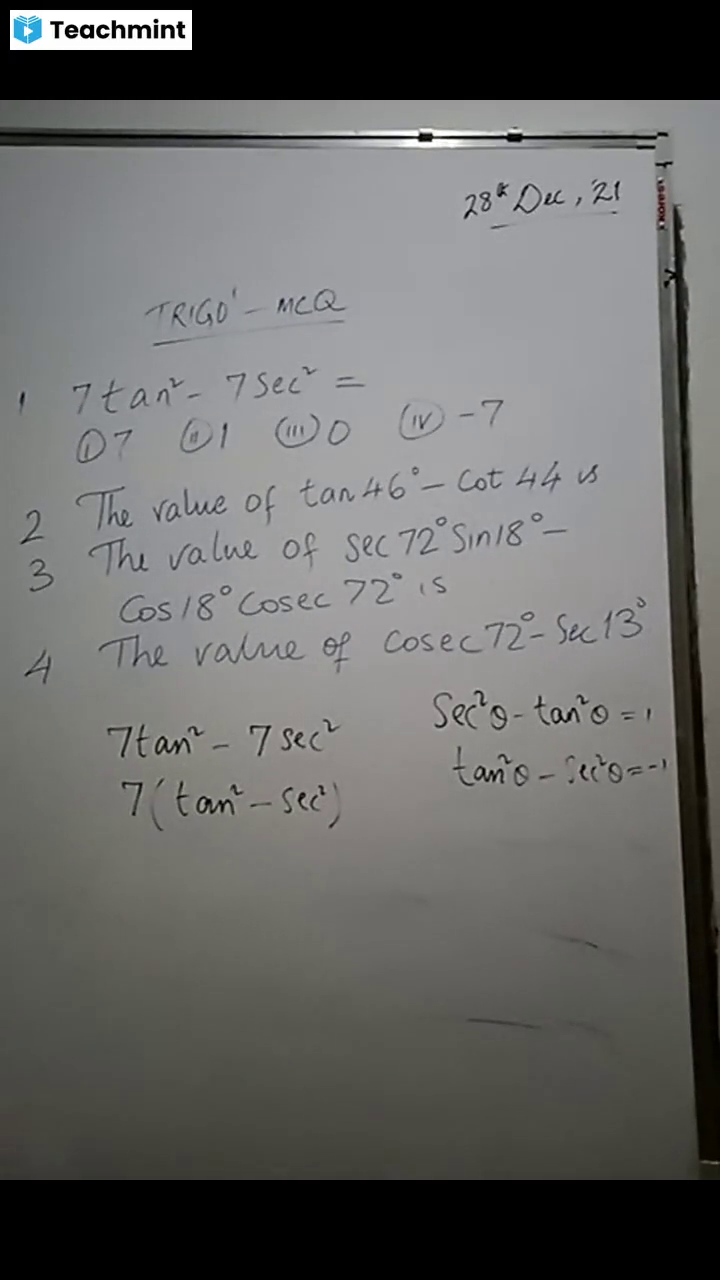 Teachmint
28th Dec, '21
TRIGO' - MCQ
1 7tan² - 7Sec² =
(i) 7 (ii) 1 (iii) 0 (iv) -7
2 The value of tan 46° - Cot 44 is
3 The value of sec 72° Sin 18° -
Cos 18° Cosec 72° is
4 The value of cosec 72° - Sec 13°
7tan² - 7sec²
7(tan² - sec²)
Sec²θ - tan²θ = 1
tan²θ - Sec²θ = -1